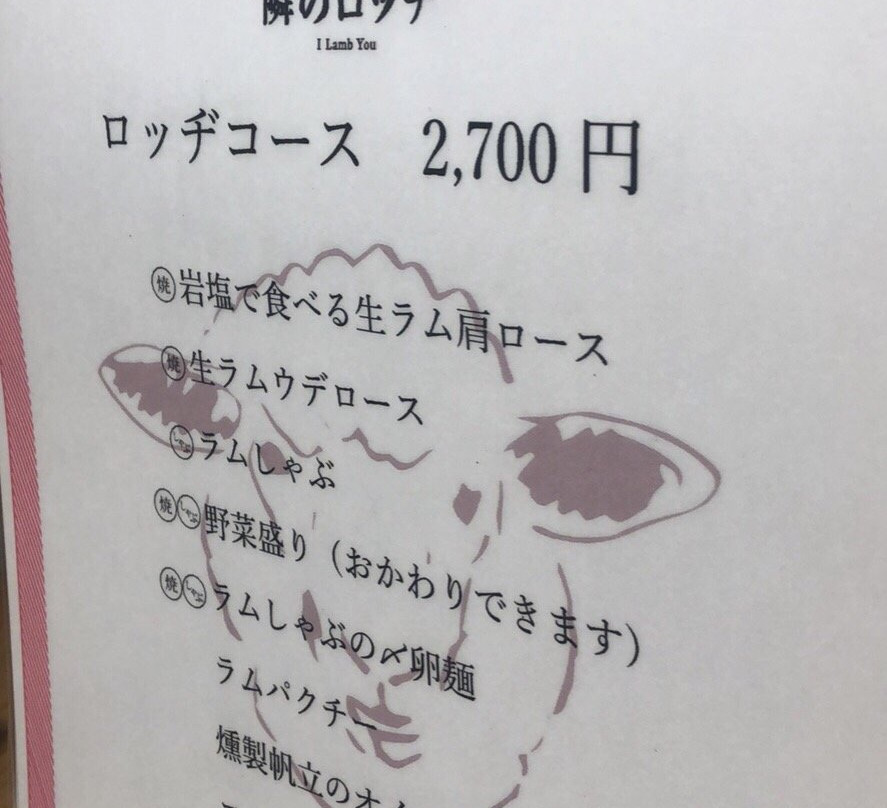 隣のロッヂ
I Lamb You
ロッヂコース 2,700 円
焼 岩塩で食べる生ラム肩ロース
焼 生ラムウデロース
しゃぶ ラムしゃぶ
焼 しゃぶ 野菜盛り（おかわりできます）
焼 しゃぶ ラムしゃぶの〆卵麺
ラムパクチー
燻製帆立のオイ